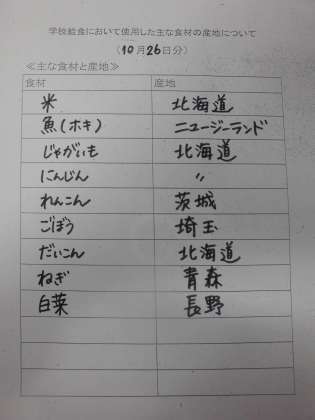 学校給食において使用した主な食材の産地について
（10月26日分）
≪主な食材と産地≫
食材 産地
米 北海道
魚(ホキ) ニュージーランド
じゃがいも 北海道
にんじん 〃
れんこん 茨城
ごぼう 埼玉
だいこん 北海道
ねぎ 青森
白菜 長野